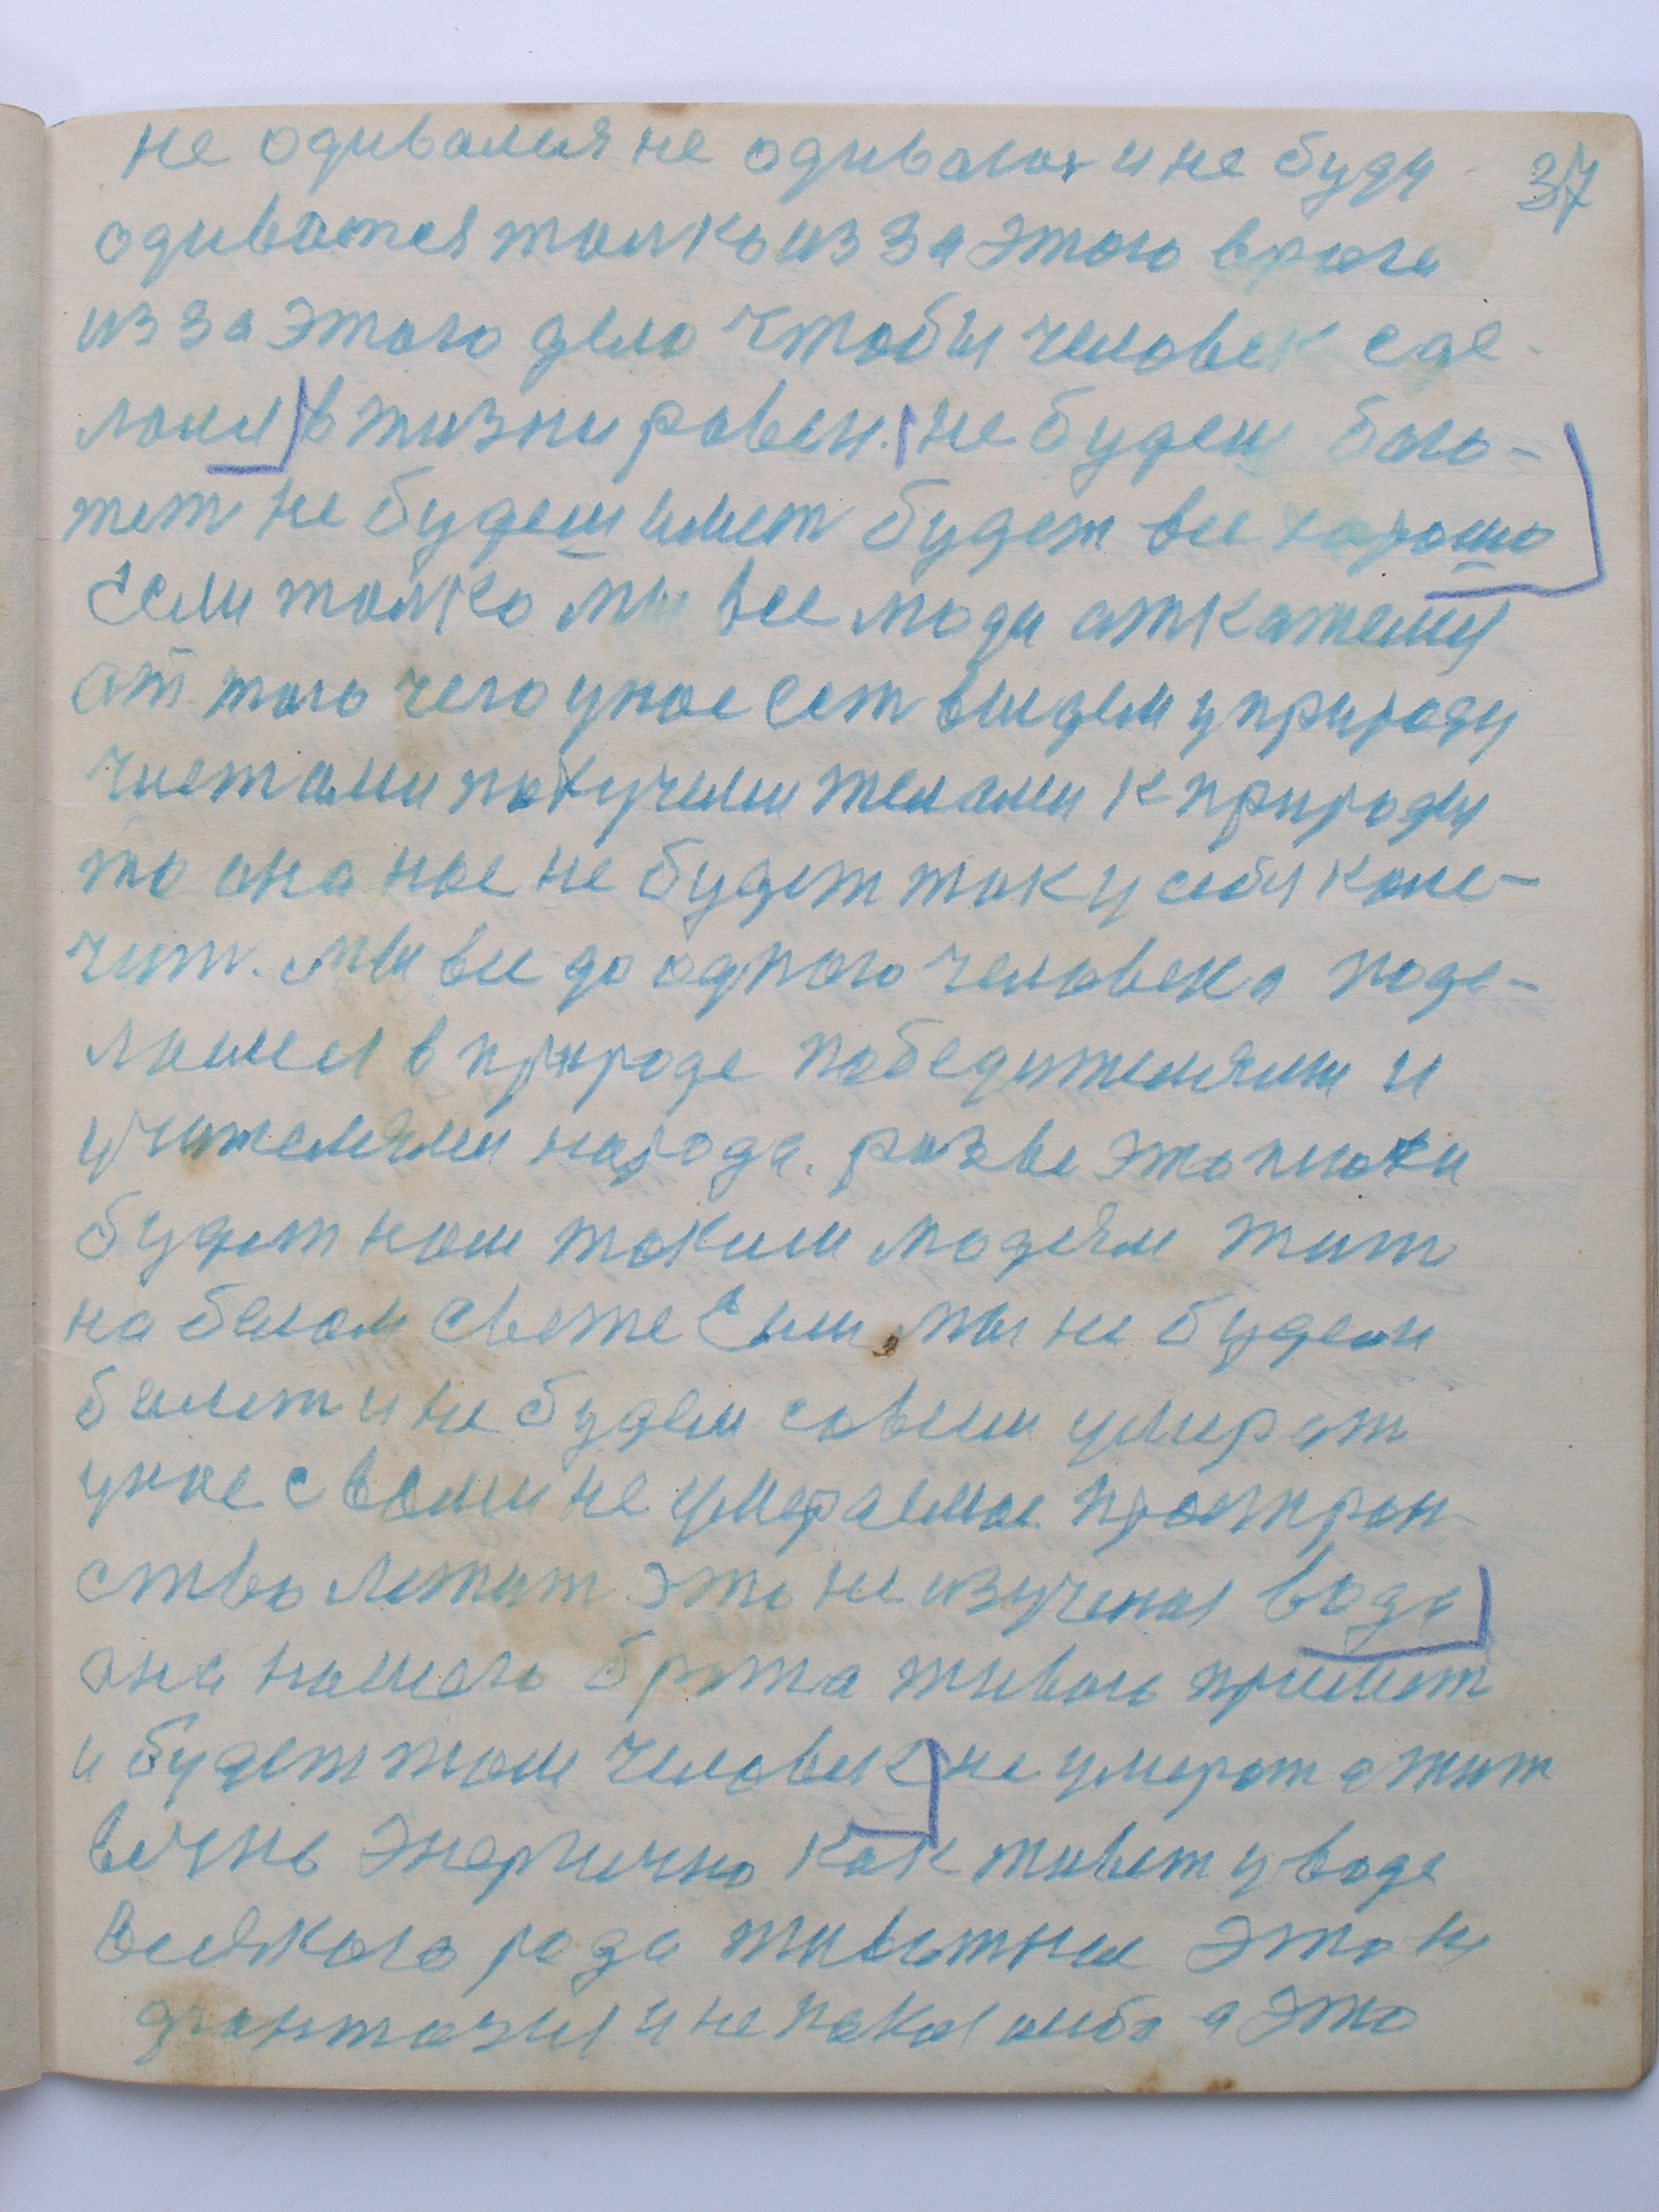 не одивался не одиваюся и не буду 37
одиватся толко из за этого врага
из за этого дело чтобы человек сде-
лался в жизни равен. не будеш бого-
тет не будеш имет будет все хорошо
Если толко мы все люди откажемся
от того чего у нас ест выйдем у природу
чистами могучими телами к природы
то она нас не будет так у себя кале-
чит. мы все до одного человека поде-
лаемся в природе победителями и
учителями народа. разве это плохи
будет нам таким людям жит
на белом свете Если мы не будем
болет и не будем совсем умерат
у нас с вами не умераемае простран
ство лежит это не изученая вода
она нашего брата живого примет
и будет там человек не умерат а жит
вечно энергично как живет у воде
всякого рода животные это не
фантазия и не какая либа а это